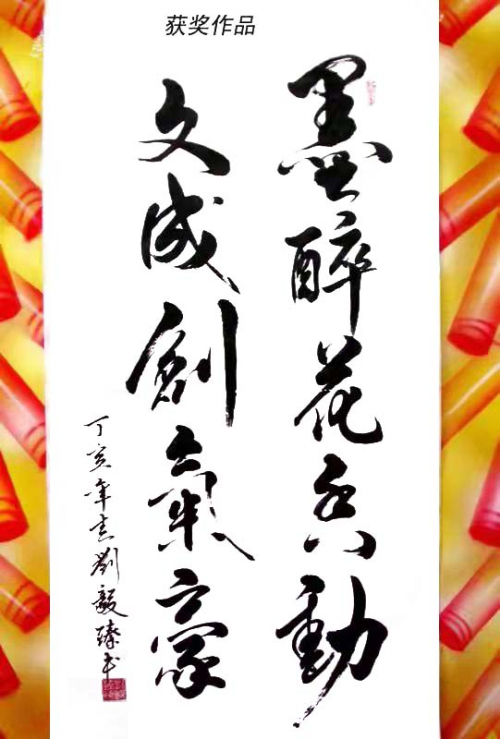 获奖作品
墨醉花香動
文成劍氣豪
丁亥年劉毅臻书